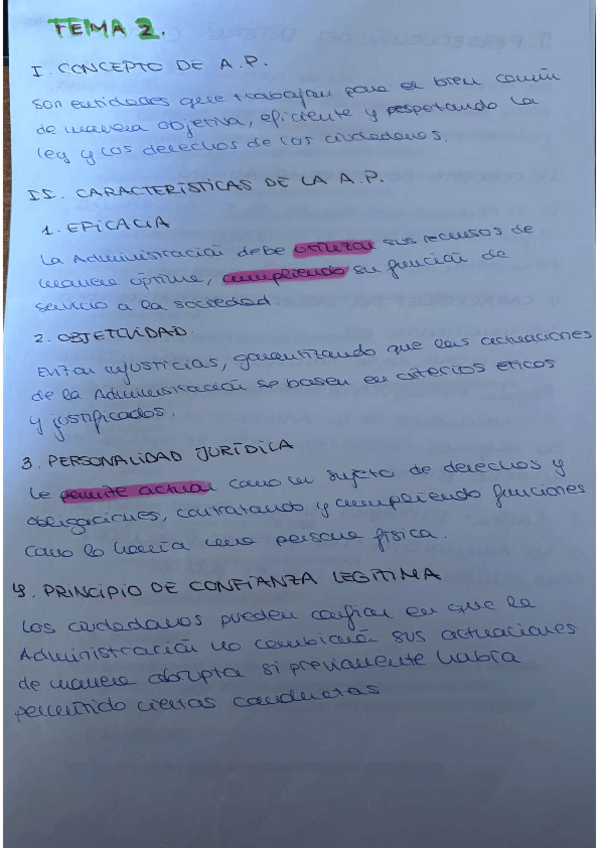 TEMA 2.
I. CONCEPTO DE A.P.
Son entidades que trabajan para el bien común
de manera objetiva, eficiente y respetando la
ley y los derechos de los ciudadanos.
II. CARACTERÍSTICAS DE LA A.P.
1. EFICACIA
La Administración debe utilizar sus recursos de
manera óptima, cumpliendo su función de
servicio a la sociedad.
2. OBJETIVIDAD
Evitar injusticias, garantizando que las actuaciones
de la Administración se basen en criterios eticos
y justificados.
3. PERSONALIDAD JURÍDICA
Le permite actuar como un sujeto de derechos y
obligaciones, contratando y cumpliendo funciones
como lo haría una persona física.
4. PRINCIPIO DE CONFIANZA LEGÍTIMA
Los ciudadanos pueden confiar en que la
Administración no cambiará sus actuaciones
de manera abrupta si previamente había
permitido ciertas conductas